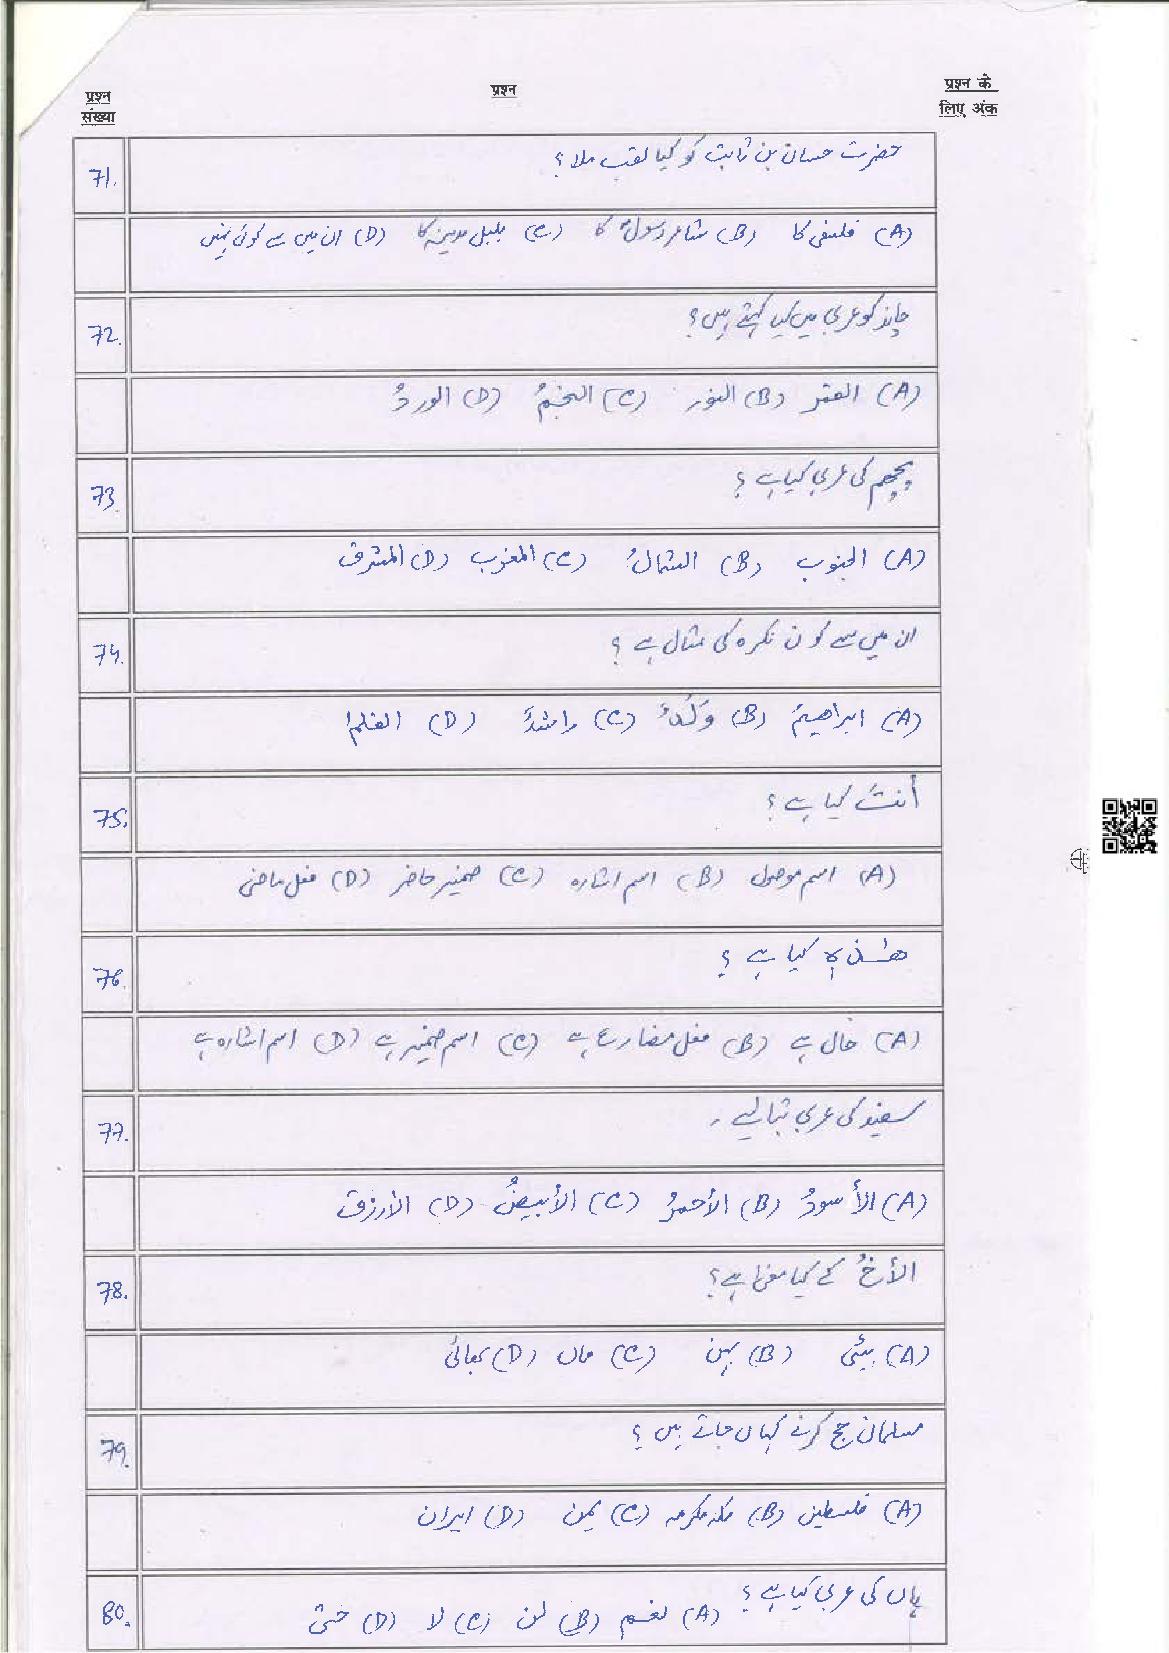 प्रश्न संख्या
प्रश्न
प्रश्न के लिए अंक
71.
حضرت حسان بن ثابت کو کیا لقب ملا؟
(A) فلسفی کا (B) شاعر رسولؐ کا (C) بلبل مدینہ کا (D) ان میں سے کوئی نہیں
72.
چاند کو عربی میں کیا کہتے ہیں؟
(A) القمر (B) النور (C) النجمُ (D) الوردُ
73.
پچھم کی عربی کیا ہے؟
(A) الجنوب (B) الشمالُ (C) المغرب (D) المشرق
74.
ان میں سے کون نکرہ کی مثال ہے؟
(A) ابراھیمُ (B) وَلَدٌ (C) راشدٌ (D) القلم
75.
أنتَ کیا ہے؟
(A) اسم موصول (B) اسم اشارہ (C) ضمیر حاضر (D) فعل ماضی
76.
ھٰذہٖ کیا ہے؟
(A) حال ہے (B) فعل مضارع ہے (C) اسم ضمیر ہے (D) اسم اشارہ ہے
77.
سفید کی عربی بتائیے۔
(A) الأسودُ (B) الأحمرُ (C) الأبیضُ (D) الأزرق
78.
الأخُ کے کیا معنیٰ ہے؟
(A) بیٹی (B) بہن (C) ماں (D) بھائی
79.
مسلمان حج کرنے کہاں جاتے ہیں؟
(A) فلسطین (B) مکہ مکرمہ (C) یمن (D) ایران
80.
ہاں کی عربی کیا ہے؟
(A) نعم (B) لن (C) لا (D) حتیٰ